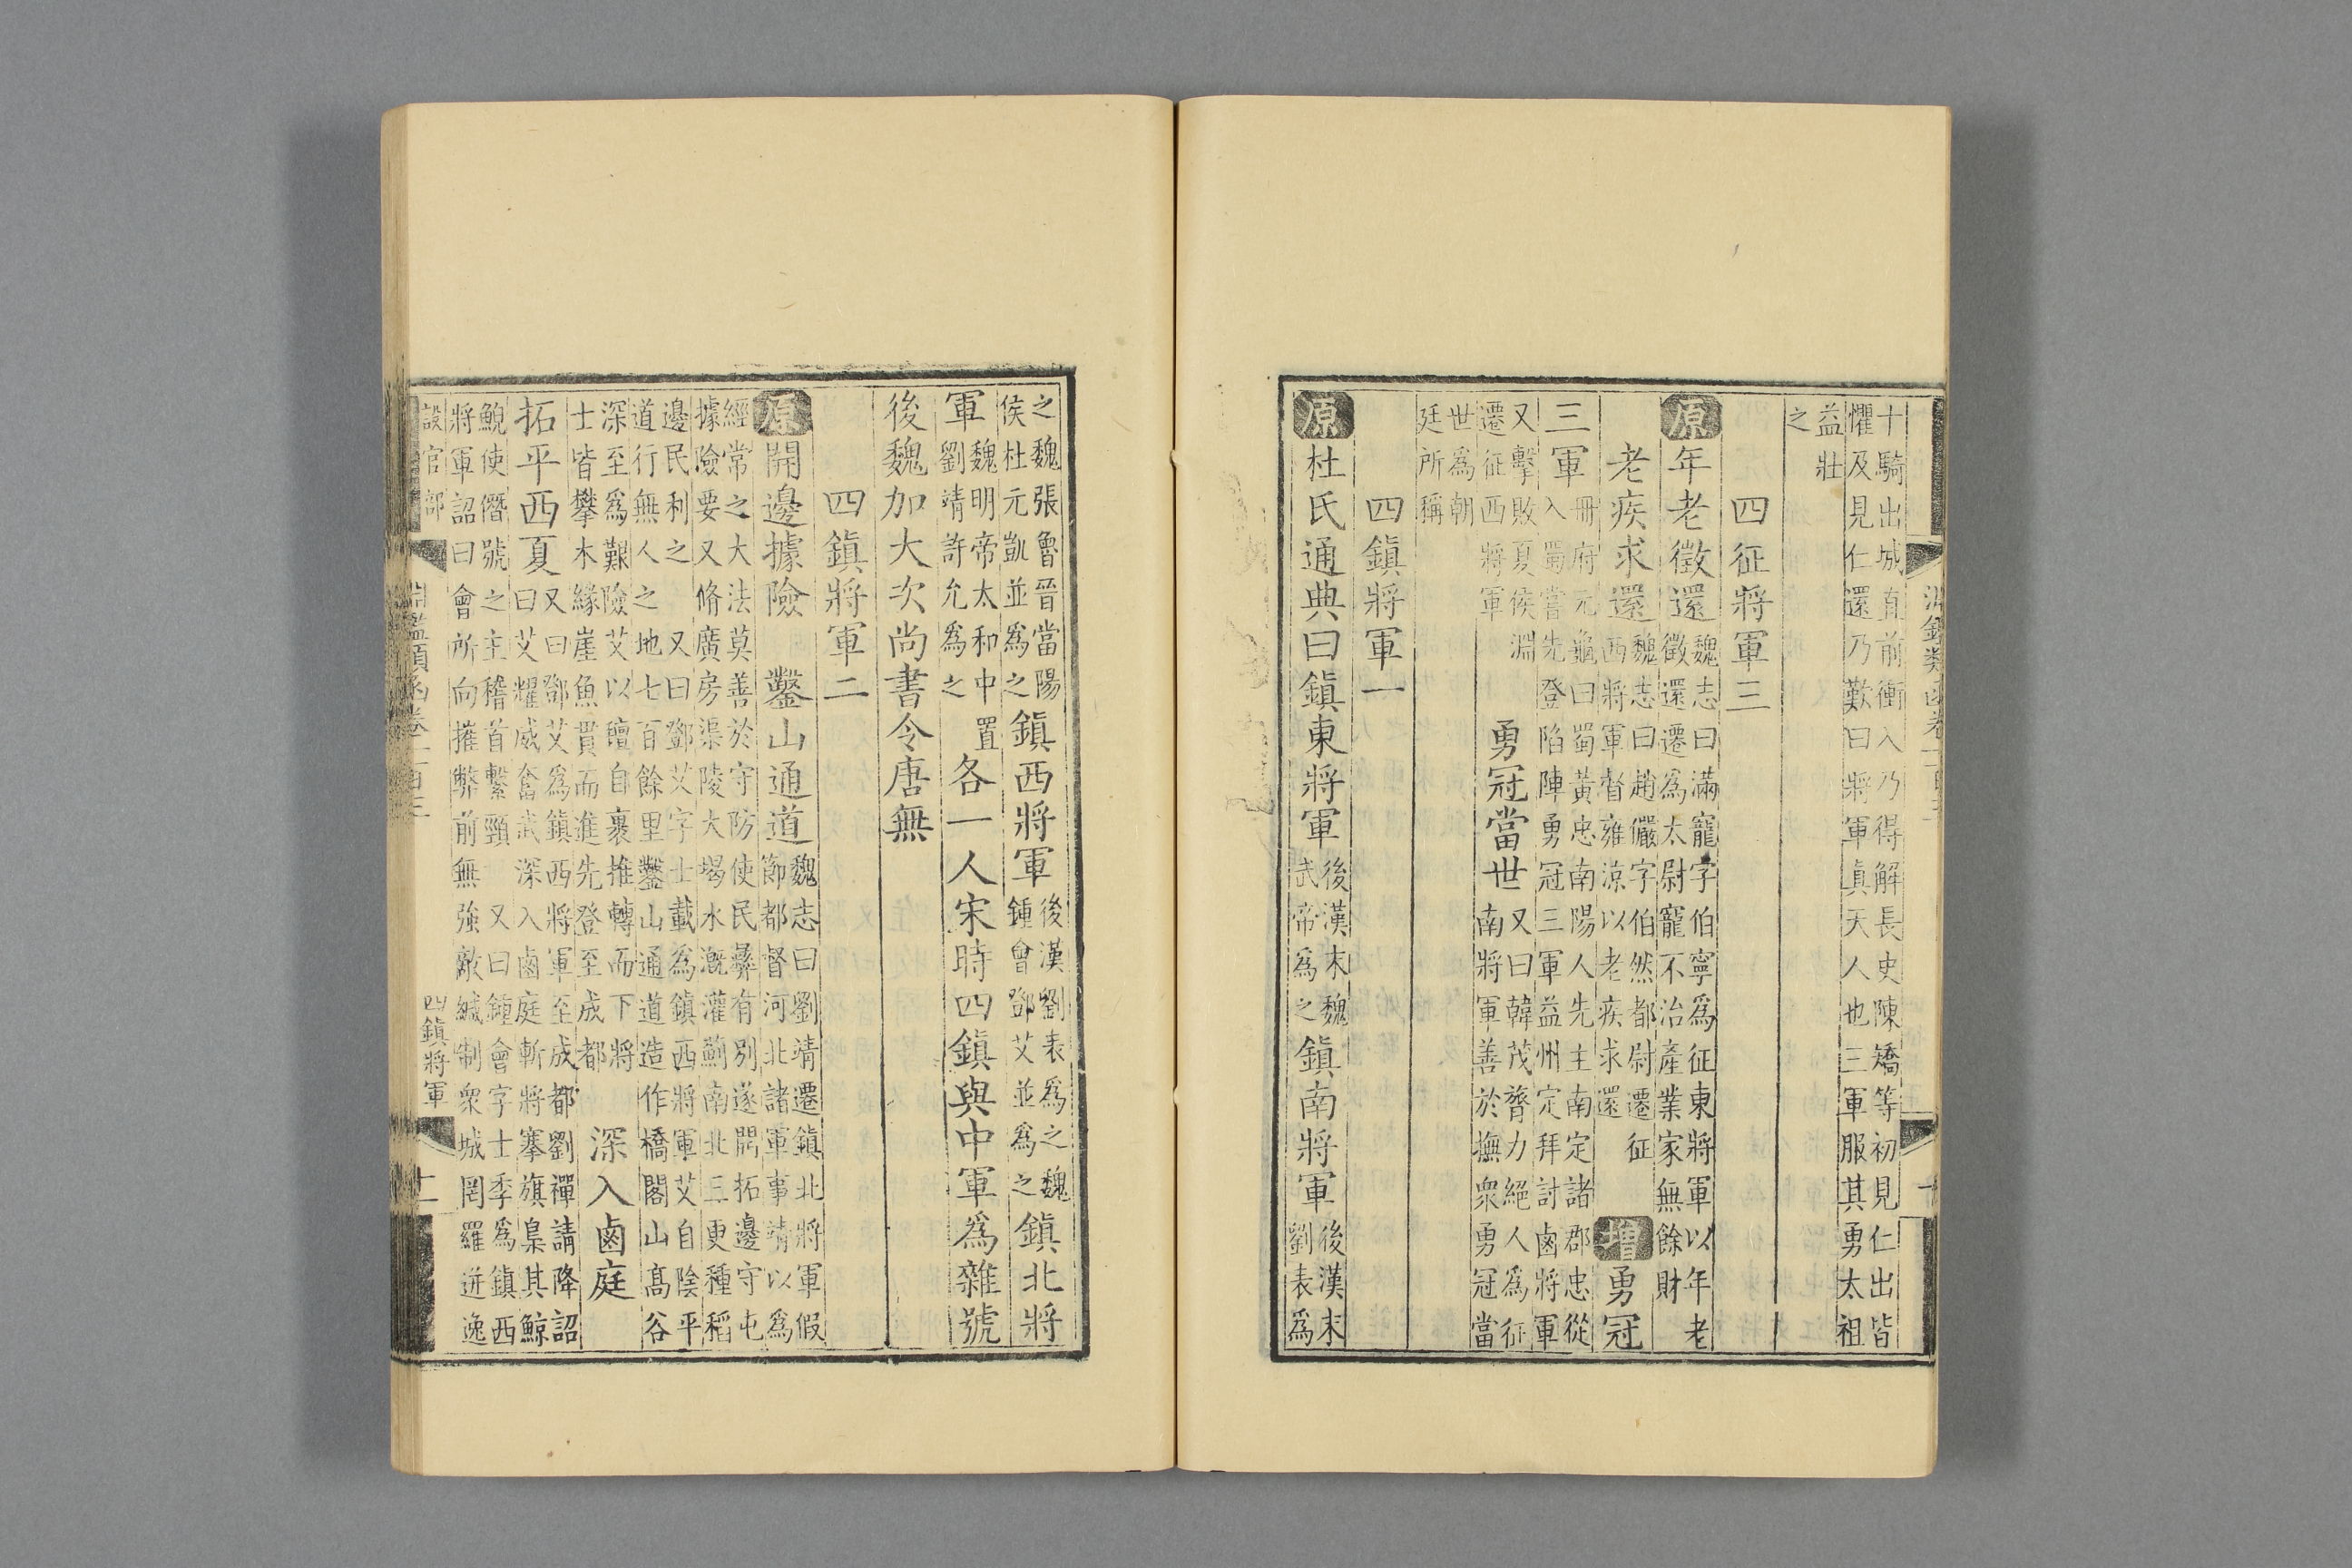 淵鑑類函卷一百三
十
十騎出城直前衝入乃得解長史陳矯等初見仁出皆
懼及見仁還乃歎曰將軍真天人也三軍服其勇太祖
益壯
之
四征將軍三
原年老徵還
魏志曰滿寵字伯寧爲征東將軍以年老
徵還遷爲太尉寵不治產業家無餘財
老疾求還
魏志曰趙儼字伯然都尉遷征
西將軍督雍涼以老疾求還
增勇冠
三軍
冊府元龜曰蜀黃忠南陽人先主南定諸郡忠從
入蜀嘗先登陷陣勇冠三軍益州定拜討鹵將軍
又擊敗夏侯淵
遷征西將軍
勇冠當世
又曰韓茂膂力絕人爲征
南將軍善於撫衆勇冠當
世爲朝
廷所稱
四鎮將軍一
原杜氏通典曰鎮東將軍
後漢末魏
武帝爲之
鎮南將軍
後漢末
劉表爲
之魏張魯晉當陽
侯杜元凱並爲之
鎮西將軍
後漢劉表爲之魏
鍾會鄧艾並爲之
鎮北將
軍
魏明帝太和中置
劉靖許允爲之
各一人宋時四鎮與中軍爲雜號
後魏加大次尚書令唐無
四鎮將軍二
原開邊據險
鑿山通道
魏志曰劉靖遷鎮北將軍假
節都督河北諸軍事靖以爲
經常之大法莫善於守防使民彝有別遂開拓邊守屯
據險要又脩廣房渠陵大堨水溉灌薊南北三更種稻
邊民利之
又曰鄧艾字士載爲鎮西將軍艾自陰平
道行無人之地七百餘里鑿山通道造作橋閣山高谷
深至爲艱險艾以氈自裹推轉而下將
士皆攀木緣崖魚貫而進先登至成都
深入鹵庭
拓平西夏
又曰鄧艾爲鎮西將軍至成都劉禪請降詔
曰艾耀威奮武深入鹵庭斬將搴旗梟其鯨
鯢使僭號之主稽首繫頸
又曰鍾會字士季爲鎮西
將軍詔曰會所向摧弊前無強敵緘制衆城罔羅迸逸
淵鑑類函卷一百三
設官部
四鎮將軍
十一